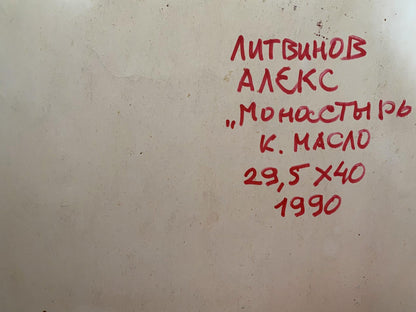 ЛИТВИНОВ
АЛЕКС
„МОНАСТЫРЬ
К. МАСЛО
29,5 X 40
1990